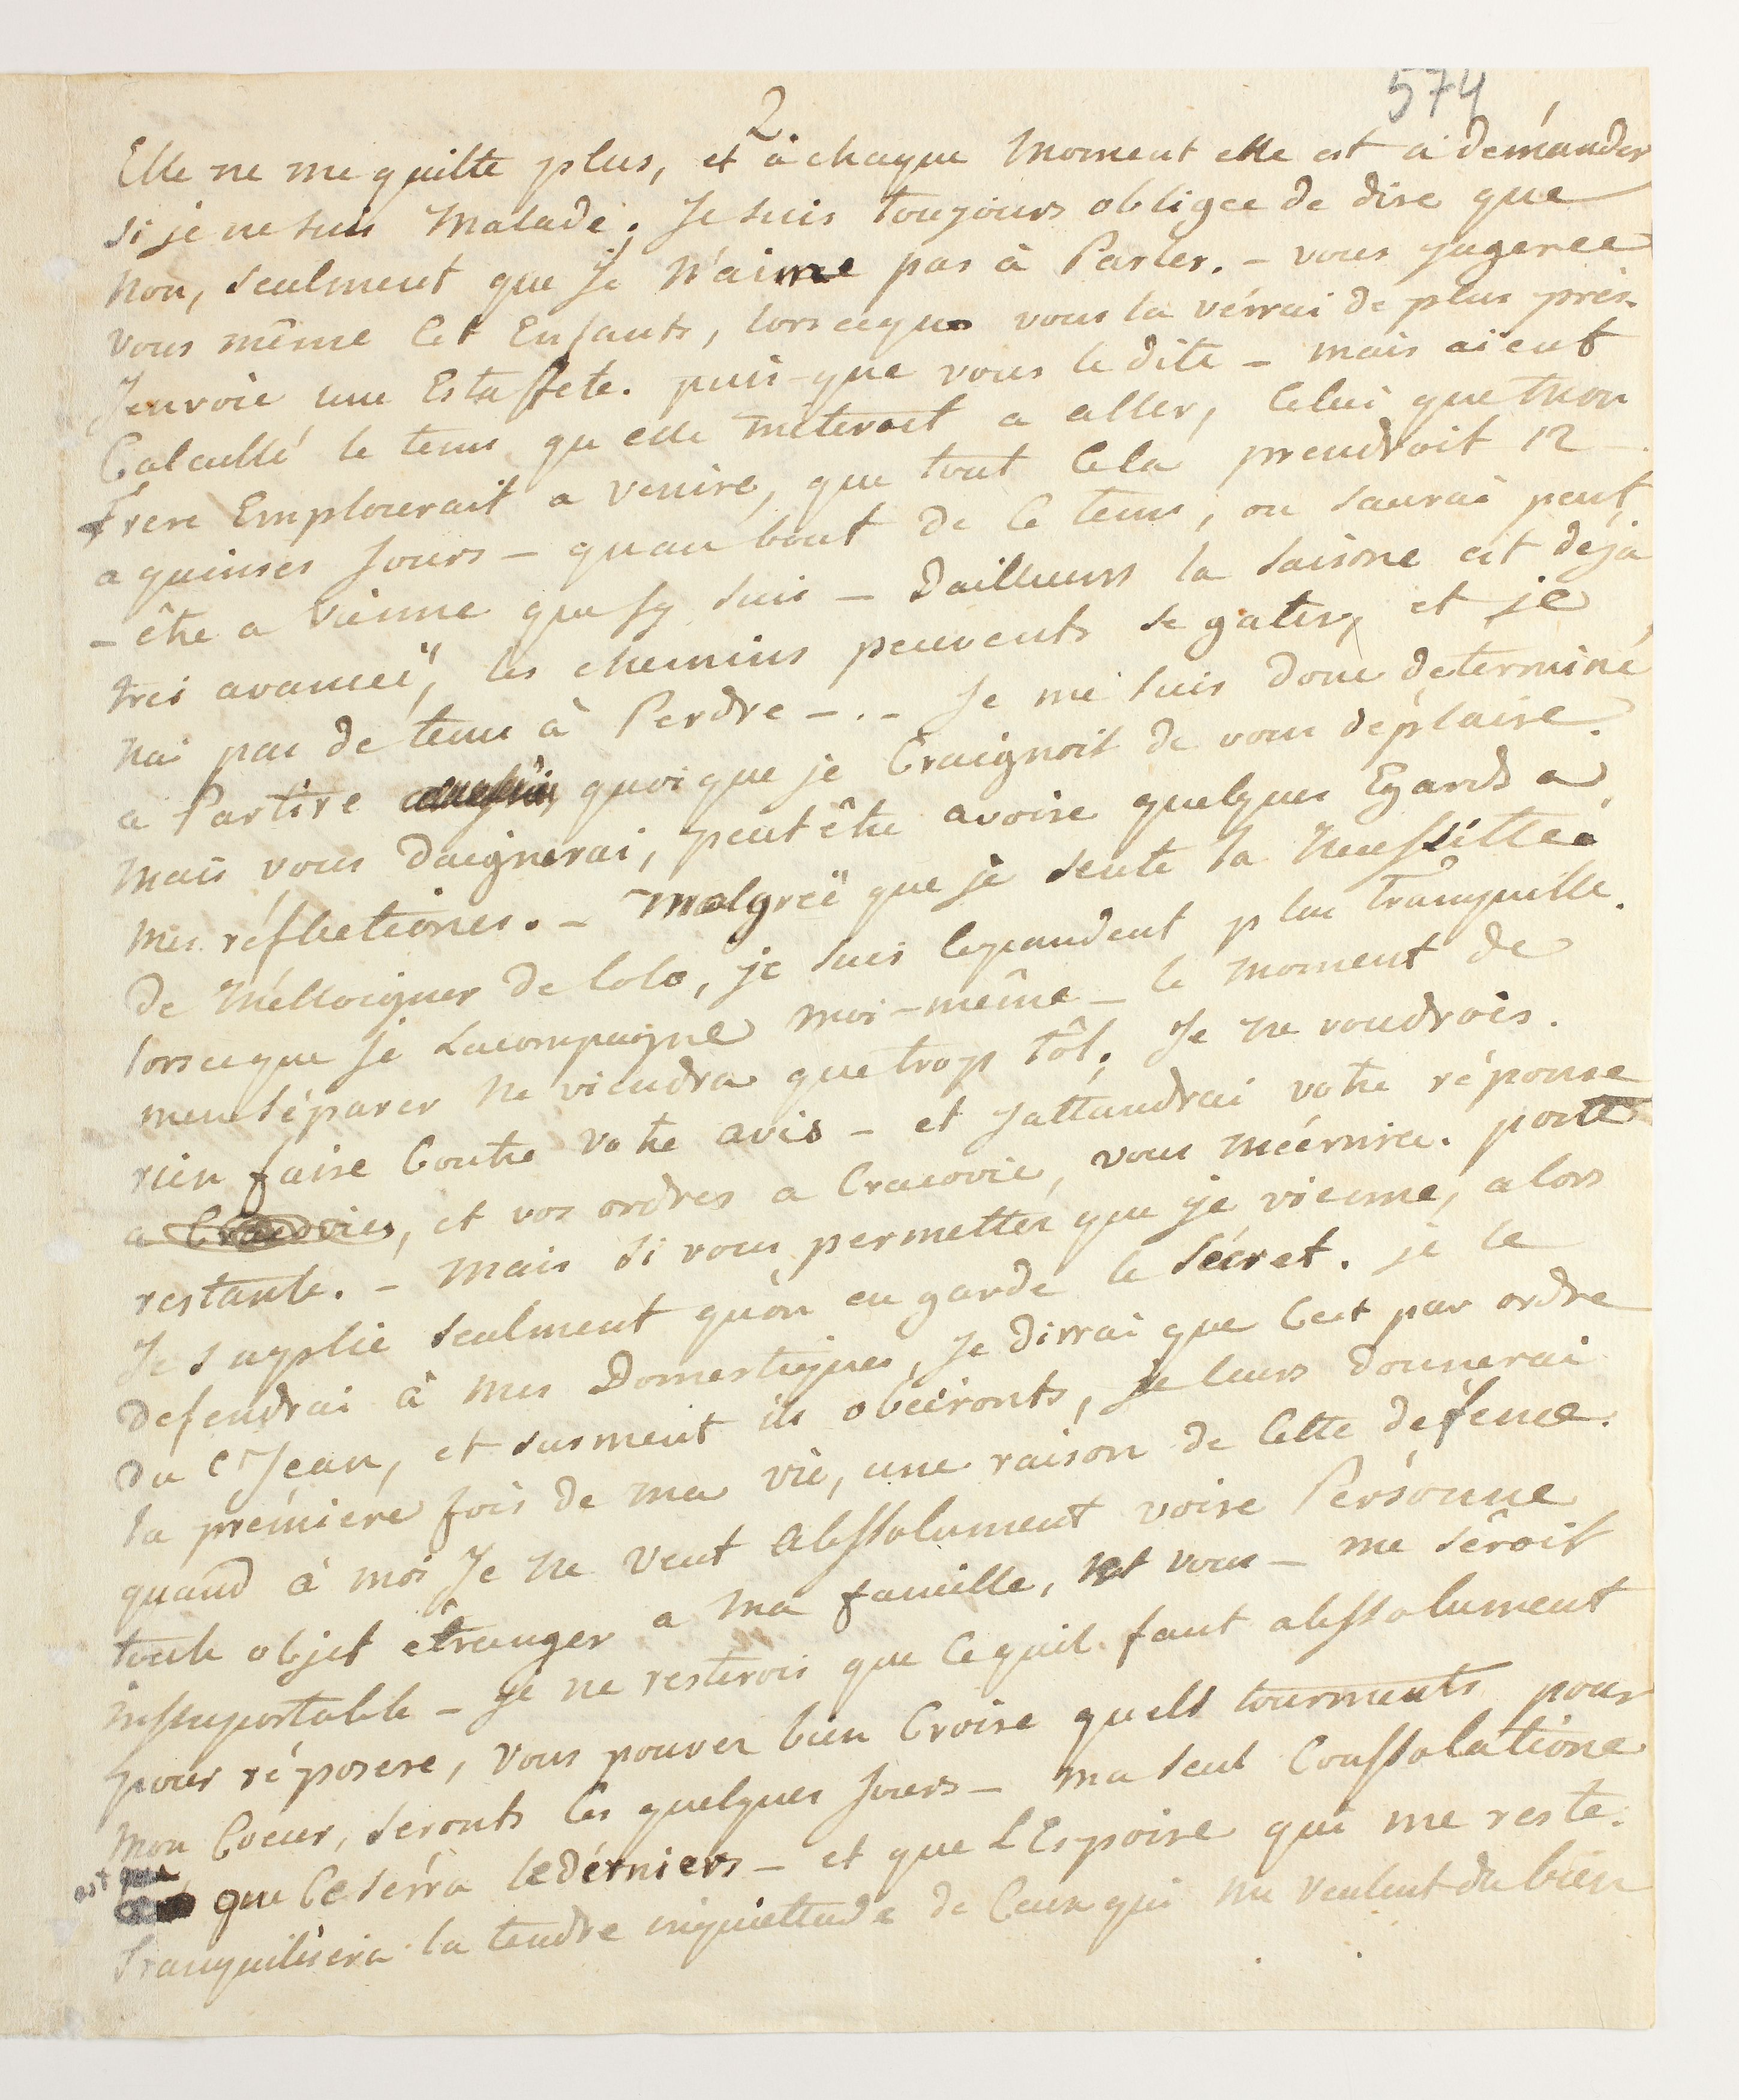 574
2
Elle ne me quitte plus, et à chaque moment elle est à démander
si je ne suis Malade; Je suis toujours obligee de dire que
non, seulment que Je N'aime pas à Parler. – vous jugeree
vous même Cet Enfants, lorsceque vous la vérrai de plus près.
J'envoie une Estaffete. puis-que vous le dite – mais aïent
Calcullé le tems qu elle méteroit a aller, Celui que Mon
frere Emplouerait a venire, que tout Cela prendroit 12 –
a quinses Jours – quau bout de Ce tems, on saurai peut
– être a Vienne que Jy suis – Dailleurs la saisone est déja
tres avancéé, les chemins peuvents se gater, et je
nai pas de tems à Perdre – . – Je me suis donc déterminé
a Partire quoique je Craignoit de vous déplaire.
Mais vous daignerai, peut être avoire quelques Egards a
mes réflectiones. – Malgréé que je sente la Nessésittée
de Mélloigner de lolo, je suis Cepandent plus tranquille.
lorsceque Je Lacompagne moi-même – le moment de
men séparer ne viendra que trop tôt; Je ne voudrois.
rien faire Contre votre avis – et Jattandrai votre réponse
a Cracovie, et vos ordres a Cracovie, vous méérirée. poste
restante. – Mais si vous permettez que je vienne, alors
Je suplie seulment quòn en garde le sécret. je le
défendrai à mes Domestiques, Je dirrai que Cest par ordre
du Cr Jean, et surment ils obéironts, je leurs donnerai
la prémiére fois de ma vie, une raison de Cette défence.
quand à moi Je ne veut absolument voire Pérsonne
toute objet étranger a Ma famille, et vous – me séroit
insuportable – Je ne resterois que Cequil faut absolument
pour réposere, vous pouvez bien Croire quells tourments pour
Mon Coeur, seronts Ces quelques Jours – ma seul Consolatione
est que Ce sérra ledérniers – et que L'Espoire qui me reste.
tranquilisera la tendre inquiettude de Ceux qui me veulent du bien